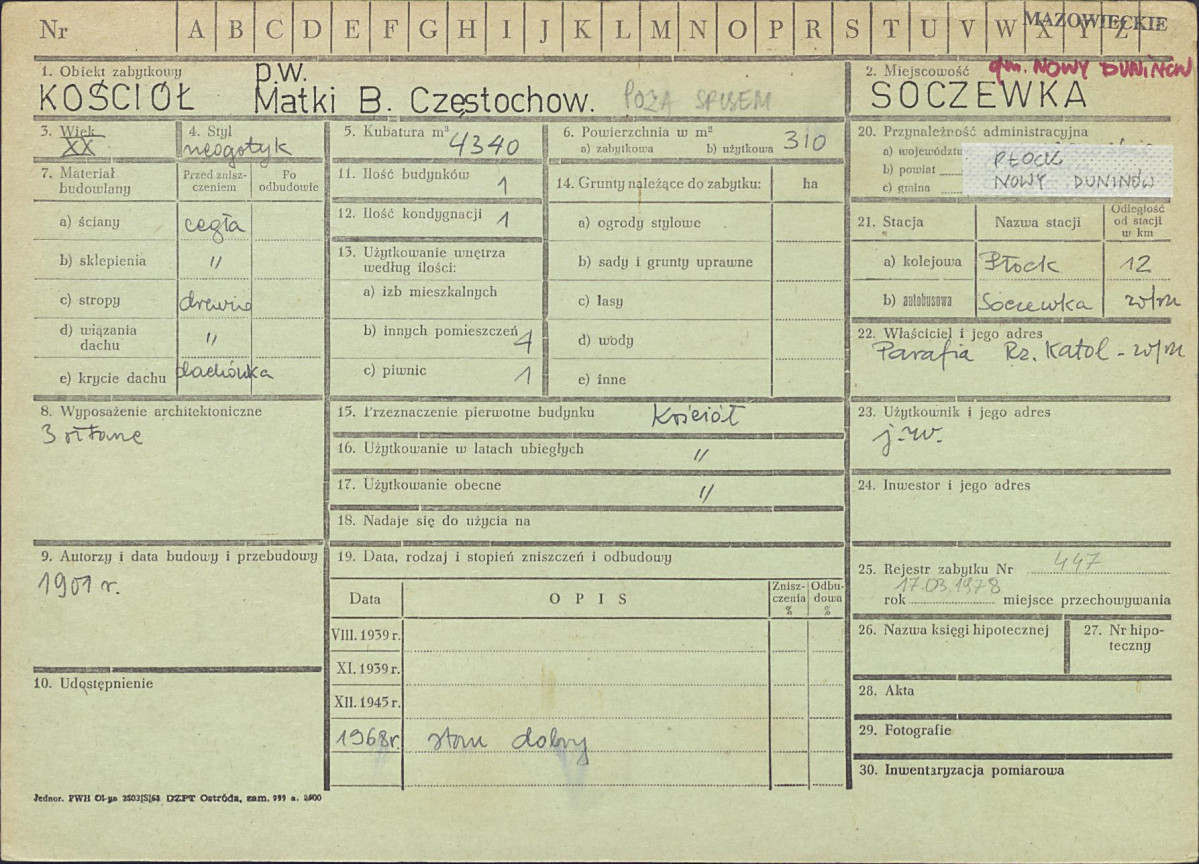 Nr A B C D E F G H I J K L M N O P R S T U V W X Y Z MAZOWIECKIE
1. Obiekt zabytkowy p.w.
KOŚCIÓŁ Matki B. Częstochow. POZA SPISEM
2. Miejscowość gm. NOWY DUNINÓW
SOCZEWKA
3. Wiek
XX
4. Styl
neogotyk
5. Kubatura m³
4340
6. Powierzchnia w m²
a) zabytkowa b) użytkowa 310
7. Materiał budowlany
Przed zniszczeniem
Po odbudowie
a) ściany cegła
b) sklepienia "
c) stropy drewno
d) wiązania dachu "
e) krycie dachu dachówka
8. Wyposażenie architektoniczne
3 ołtarze
9. Autorzy i data budowy i przebudowy
1901 r.
10. Udostępnienie
11. Ilość budynków 1
12. Ilość kondygnacji 1
13. Użytkowanie wnętrza
według ilości:
a) izb mieszkalnych
b) innych pomieszczeń 4
c) piwnic 1
14. Grunty należące do zabytku: ha
a) ogrody stylowe
b) sady i grunty uprawne
c) lasy
d) wody
e) inne
15. Przeznaczenie pierwotne budynku Kościół
16. Użytkowanie w latach ubiegłych "
17. Użytkowanie obecne "
18. Nadaje się do użycia na
19. Data, rodzaj i stopień zniszczeń i odbudowy
Data OPIS Zniszczenia % Odbudowa %
VIII. 1939 r.
XI. 1939 r.
XII. 1945 r.
1968r. stan dobry
20. Przynależność administracyjna
a) województwo
b) powiat PŁOCK
c) gmina NOWY DUNINÓW
21. Stacja Nazwa stacji Odległość od stacji w km
a) kolejowa Płock 12
b) autobusowa Soczewka w/m
22. Właściciel i jego adres
Parafia Rz. Katol - w/m
23. Użytkownik i jego adres
j.w.
24. Inwestor i jego adres
25. Rejestr zabytku Nr 447
17.03.1978
rok miejsce przechowywania
26. Nazwa księgi hipotecznej
27. Nr hipoteczny
28. Akta
29. Fotografie
30. Inwentaryzacja pomiarowa
Jednor. PWH Ol-yn 2503|S|63 DZPT Ostróda, zam. 999 n. 2500